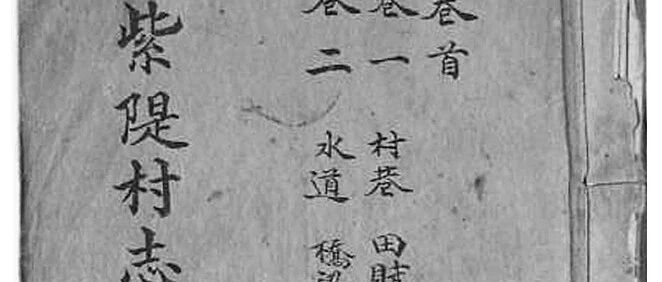 卷首
卷一 村巷 田賦
卷二 水道 橋梁
紫隄村志